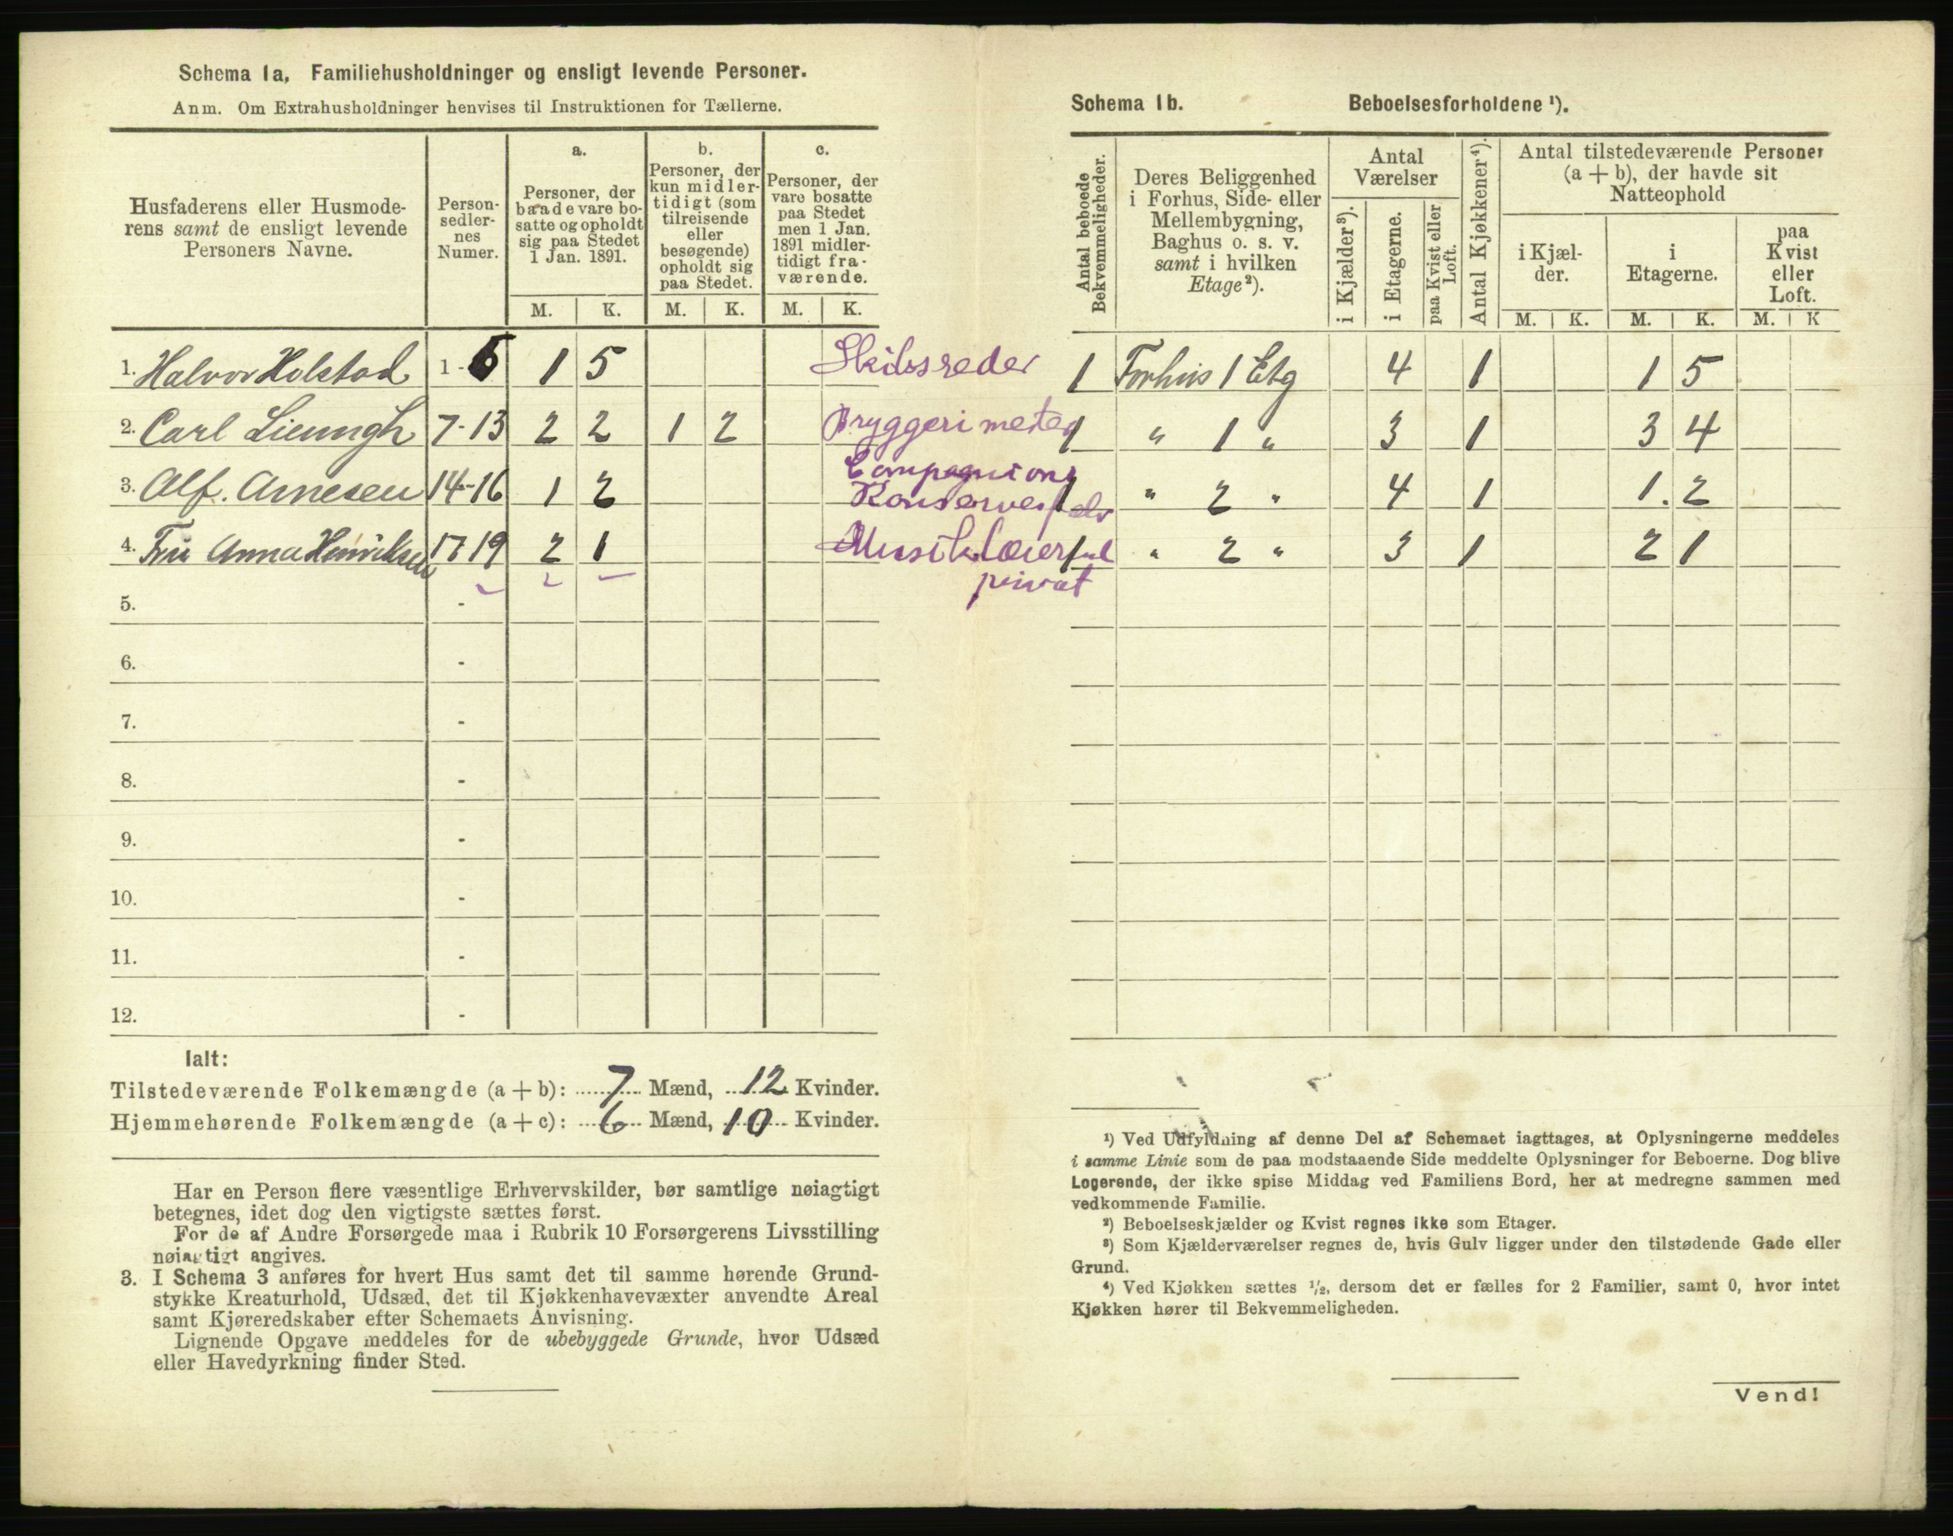 Schema 1a, Familiehusholdninger og ensligt levende Personer.
Anm. Om Extrahusholdninger henvises til Instruktionen for Tællerne.
Husfaderens eller Husmode-
rens samt de ensligt levende
Personers Navne.
Person-
sedler-
nes
Numer.
a.
Personer, der
baade vare bo-
satte og opholdt
sig paa Stedet
1 Jan. 1891.
b.
Personer, der
kun midler-
tidigt (som
tilreisende
eller
besøgende)
opholdt sig
paa Stedet.
c.
Personer, der
vare bosatte
paa Stedet
men 1 Jan.
1891 midler-
tidigt fra-
værende.
M. K. M. K. M. K.
1. Halvor Holstad 1-6 1 5 Skibsreder
2. Carl Lieungh 7-13 2 2 1 2 Bryggerimester
3. Alf. Arnesen 14-16 1 2 Compagnion
Konserves
4. Fru Anna Henriksen 17-19 2 1 Musiklærer
privat
5. -
6. -
7. -
8. -
9. -
10. -
11. -
12. -
Ialt:
Tilstedeværende Folkemængde (a + b): 7 Mænd, 12 Kvinder.
Hjemmehørende Folkemængde (a + c): 6 Mænd, 10 Kvinder.
Har en Person flere væsentlige Erhvervskilder, bør samtlige nøiagtigt
betegnes, idet dog den vigtigste sættes først.
For de af Andre Forsørgede maa i Rubrik 10 Forsørgerens Livsstilling
nøiagtigt angives.
3. I Schema 3 anføres for hvert Hus samt det til samme hørende Grund-
stykke Kreaturhold, Udsæd, det til Kjøkkenhavevæxter anvendte Areal
samt Kjøreredskaber efter Schemaets Anvisning.
Lignende Opgave meddeles for de ubebyggede Grunde, hvor Udsæd
eller Havedyrkning finder Sted.
Schema 1b. Beboelsesforholdene ¹).
Antal beboede
Bekvemmeligheder.
Deres Beliggenhed
i Forhus, Side- eller
Mellembygning,
Baghus o. s. v.
samt i hvilken
Etage ²).
Antal
Værelser
i Kjælder ³).
i Etagerne.
paa Kvist eller
Loft.
Antal Kjøkkener ⁴).
Antal tilstedeværende Personer
(a + b), der havde sit
Natteophold
i Kjæl-
der.
i
Etagerne.
paa
Kvist
eller
Loft.
M. K. M. K. M. K
1 Forhus 1 Etg 4 1 1 5
1 " 1 " 3 1 3 4
1 " 2 " 4 1 1. 2
1 " 2 " 3 1 2 1
¹) Ved Udfyldning af denne Del af Schemaet iagttages, at Oplysningerne meddeles
i samme Linie som de paa modstaaende Side meddelte Oplysninger for Beboerne. Dog blive
Logerende, der ikke spise Middag ved Familiens Bord, her at medregne sammen med
vedkommende Familie.
²) Beboelseskjælder og Kvist regnes ikke som Etager.
³) Som Kjælderværelser regnes de, hvis Gulv ligger under den tilstødende Gade eller
Grund.
⁴) Ved Kjøkken sættes ½, dersom det er fælles for 2 Familier, samt 0, hvor intet
Kjøkken hører til Bekvemmeligheden.
Vend!